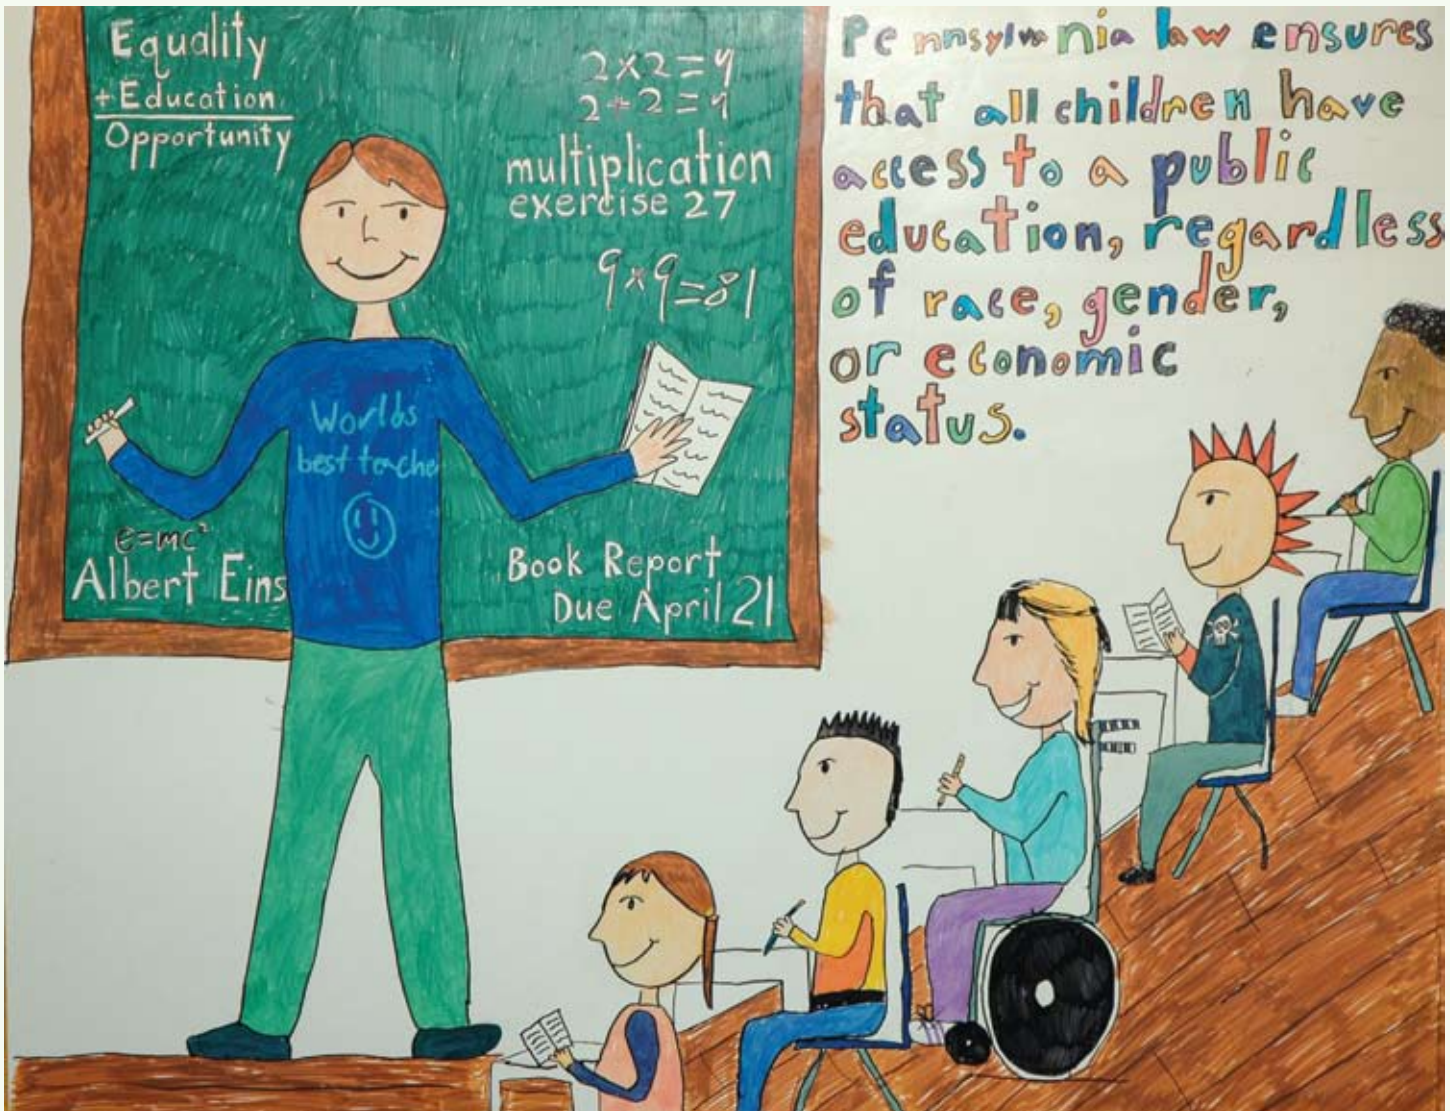 Equality
+Education
Opportunity
2×2=4
2+2=4
multiplication
exercise 27
9×9=81
Worlds
best teache
e=mc²
Albert Eins
Book Report
Due April 21
Pennsylvania law ensures
that all children have
access to a public
education, regardless
of race, gender,
or economic
status.